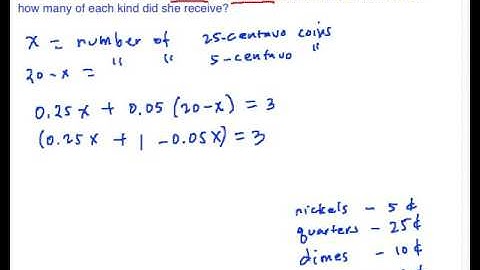 how many of each kind did she receive?
x = number of 25-centavo coins
20-x = " " 5-centavo "
0.25x + 0.05 (20-x) = 3
(0.25x + 1 - 0.05x) = 3
nickels - 5 ¢
quarters - 25¢
dimes - 10 ¢